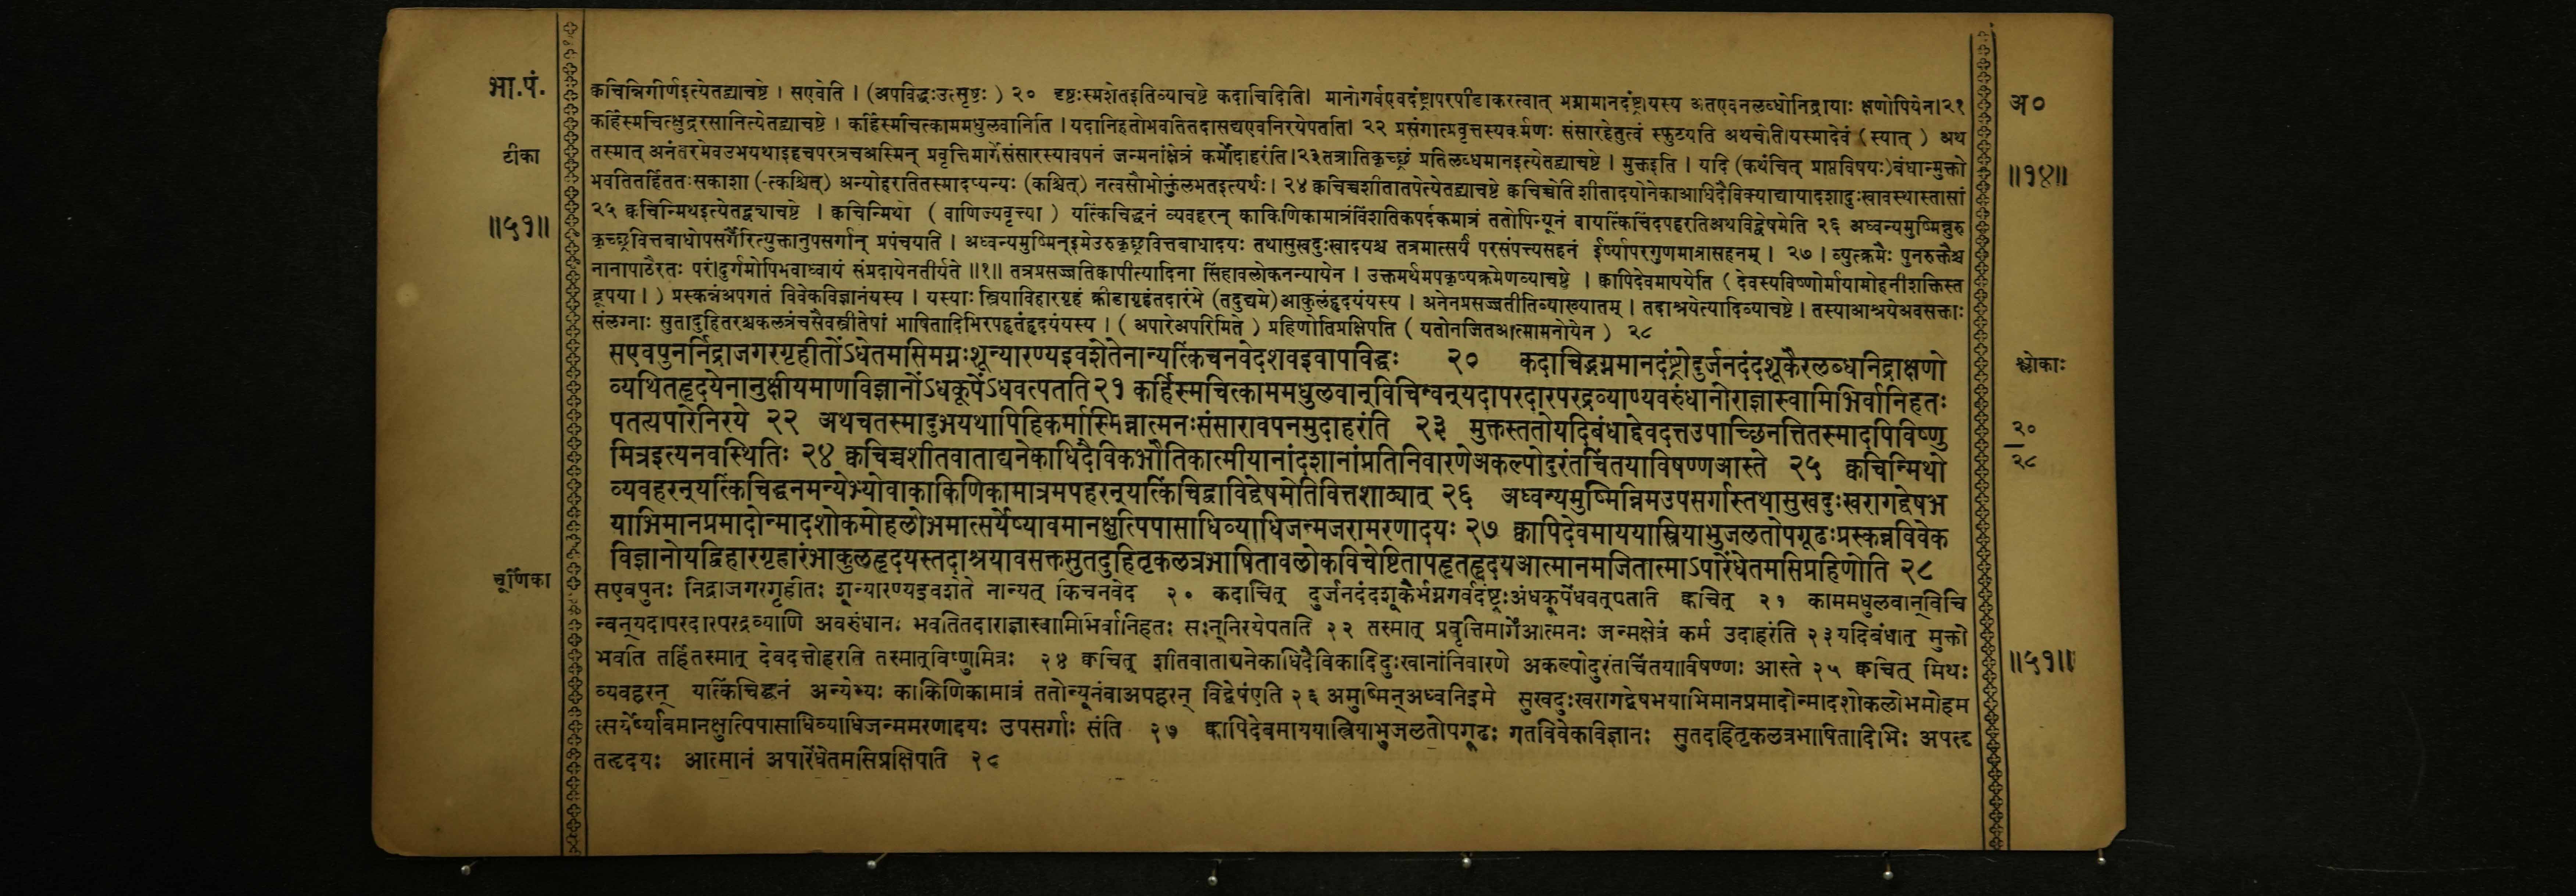 भा.पं.
टीका
॥५१॥
क्वचिन्निगीर्णइत्येतद्व्याचष्टे । सएवेति । (अपविद्धःउत्सृष्टः) २० दृष्टःस्मशेतइतिव्याचष्टे कदाचिदिति। मानोगर्वएवदंष्ट्रापरपीडाकरत्वात् भग्नामानदंष्ट्रायस्य अतएवनलब्धोनिद्रायाः क्षणोपियेन।२१
कर्हिस्मचित्क्षुद्ररसानित्येतद्व्याचष्टे । कर्हिस्मचित्काममधुलवानिति । यदानिहतोभवतितदासद्यएवनिरयेपतति। २२ प्रसंगात्प्रवृत्तस्यकर्मणः संसारहेतुत्वं स्फुटयति अथचेति।यस्मादेवं (स्यात्) अथ
तस्मात् अनंतरमेवउभयथाइहचपरत्रचअस्मिन् प्रवृत्तिमार्गेसंसारस्यावपनं जन्मनांक्षेत्रं कर्मोदाहरंति।२३तत्रातिकृच्छ्रं प्रतिलब्धमानइत्येतद्व्याचष्टे । मुक्तइति । यदि (कथंचित् प्राप्तविषयः)बंधान्मुक्तो
भवतितर्हिततःसकाशा (-त्कश्चित्) अन्योहरतितस्मादप्यन्यः (कश्चित्) नत्वसौभोक्तुंलभतइत्यर्थः। २४ क्वचिच्चशीतातपेत्येतद्व्याचष्टे क्वचिच्चेति शीतादयोनेकाआधिदैविक्याद्यायादशादुःखावस्थास्तासां
२५ क्वचिन्मिथइत्येतद्व्याचष्टे । क्वचिन्मिथो (वाणिज्यवृत्त्या) यत्किंचिद्धनं व्यवहरन् काकिणिकामात्रंविंशतिकपर्दकमात्रं ततोपिन्यूनं वायत्किंचिदपहरतिअथविद्वेषमेति २६ अध्वन्यमुष्मिन्नुरु
कृच्छ्रवित्तबाधोपसर्गैरित्युक्तानुपसर्गान् प्रपंचयति । अध्वन्यमुष्मिन्इमेउरुकृछ्रवित्तबाधादयः तथासुखदुःखादयश्च तत्रमात्सर्यं परसंपत्त्यसहनं ईर्ष्यापरगुणमात्रासहनम् । २७ । व्युत्क्रमैः पुनरुक्तैश्च
नानापाठैरतः परं।दुर्गमोपिभवाध्वायं संप्रदायेनतीर्यते ॥१॥ तत्रप्रसज्जतिक्वापीत्यादिना सिंहावलोकनन्यायेन । उक्तमर्थमपकृष्यक्रमेणव्याचष्टे । क्वापिदेवमाययेति (देवस्यविष्णोर्मायामोहनीशक्तिस्त
द्रूपया।) प्रस्कन्नंअपगतं विवेकविज्ञानंयस्य । यस्याः स्त्रियाविहारगृहं क्रीडागृहंतदारंभे (तदुद्यमे)आकुलंहृदयंयस्य । अनेनप्रसज्जतीतिव्याख्यातम् । तदाश्रयेत्यादिव्याचष्टे । तस्याआश्रयेअवसक्ताः
संलग्नाः सुतादुहितरश्चकलत्रंचसैवस्त्रीतेषां भाषितादिभिरपहृतंहृदयंयस्य । (अपारेअपरिमिते) प्रहिणोतिप्रक्षिपति (यतोनजितआत्मामनोयेन) २८
सएवपुनर्निद्राजगरगृहीतोंऽधेतमसिमग्नःशून्यारण्यइवशेतेनान्यत्किंचनवेदशवइवापविद्धः २० कदाचिद्भग्नमानदंष्ट्रोदुर्जनदंदशूकैरलब्धनिद्राक्षणो
व्यथितहृदयेनानुक्षीयमाणविज्ञानोंऽधकूपेंऽधवत्पतति२१ कर्हिस्मचित्काममधुलवान्विचिन्वन्यदापरदारपरद्रव्याण्यवरुंधानोराज्ञास्वामिभिर्वानिहतः
पतत्यपारेनिरये २२ अथचतस्मादुभयथापिहिकर्मास्मिन्नात्मनःसंसारावपनमुदाहरंति २३ मुक्तस्ततोयदिबंधाद्देवदत्तउपाच्छिनत्तितस्मादपिविष्णु
मित्रइत्यनवस्थितिः २४ क्वचिच्चशीतवाताद्यनेकाधिदैविकभौतिकात्मीयानांदशानांप्रतिनिवारणेअकल्पोदुरंतचिंतयाविषण्णआस्ते २५ क्वचिन्मिथो
व्यवहरन्यत्किंचिद्धनमन्येभ्योवाकाकिणिकामात्रमपहरन्यत्किंचिद्वाविद्वेषमेतिवित्तशाठ्यात् २६ अध्वन्यमुष्मिन्निमउपसर्गास्तथासुखदुःखरागद्वेषभ
याभिमानप्रमादोन्मादशोकमोहलोभमात्सर्येर्ष्यावमानक्षुत्पिपासाधिव्याधिजन्मजरामरणादयः २७ क्वापिदेवमाययास्त्रियाभुजलतोपगूढःप्रस्कन्नविवेक
विज्ञानोयद्विहारगृहारंभाकुलहृदयस्तदाश्रयावसक्तसुतदुहितृकलत्रभाषितावलोकविचेष्टितापहृतहृदयआत्मानमजितात्माऽपारेंधेतमसिप्रहिणोति २८
चूर्णिका
सएवपुनः निद्राजगरगृहीतः शून्यारण्यइवशेते नान्यत् किंचनवेद २० कदाचित् दुर्जनदंदशूकैर्भग्नगर्वदंष्ट्रःअंधकूपेंधवत्पतति क्वचित् २१ काममधुलवान्विचि
न्वन्यदापरदारपरद्रव्याणि अवरुंधानः भवतितदाराज्ञास्वामिभिर्वानिहतः सःन्निरयेपतति २२ तस्मात् प्रवृत्तिमार्गेआत्मनः जन्मक्षेत्रं कर्म उदाहरंति २३यदिबंधात् मुक्तो
भवति तर्हितस्मात् देवदत्तोहरति तस्मात्विष्णुमित्रः २४ क्वचित् शीतवाताद्यनेकाधिदैविकादिदुःखानांनिवारणे अकल्पोदुरंतचिंतयाविषण्णः आस्ते २५ क्वचित् मिथः
व्यवहरन् यत्किंचिद्धनं अन्येभ्यः काकिणिकामात्रं ततोन्यूनंवाअपहरन् विद्वेषंएति २६ अमुष्मिन्अध्वनिइमे सुखदुःखरागद्वेषभयाभिमानप्रमादोन्मादशोकलोभमोहम
त्सर्येर्ष्यावमानक्षुत्पिपासाधिव्याधिजन्ममरणादयः उपसर्गाः संति २७ क्वापिदेवमाययास्त्रियाभुजलतोपगूढः गतविवेकविज्ञानः सुतदहितृकलत्रभाषितादिभिः अपहृ
तहृदयः आत्मानं अपारेंधेतमसिप्रक्षिपति २८
अ०
॥१४॥
श्लोकाः
२०
२८
॥५१॥